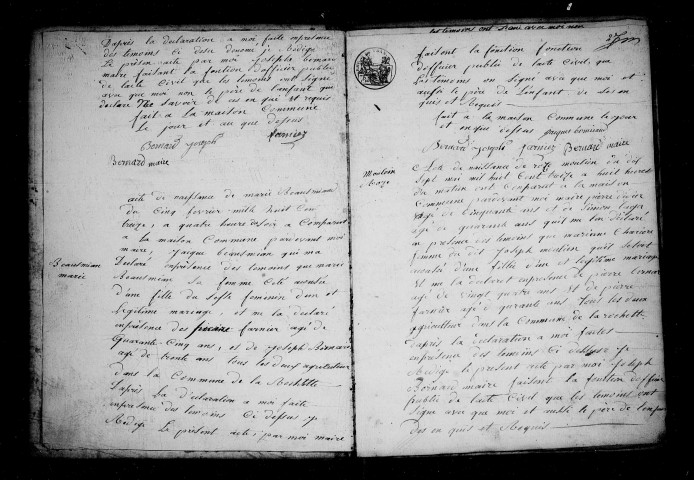 D'après la declaration a moi faite en presence
des temoins ci desu denomé je Redige
Le présent acte par moi Joseph bernard
maire faisant la fonction d'officier public
de l'acte Civil que les temoins ont Signé
avec que moi non le père de l'enfant qui
declare Ne Savoir de ces en qui et requis
fait a la maison Commune
le jour et an que dessus
Bernard joseph farnier
Bernard maire
acte de naissance de marie Beausmian
du Cinq fevrier mille huit Cen
treize, a quatre heure du soir a Comparut
a la maison Commune pardevant moi
maire, Jaque beausmian qui ma
Declaré en presence des temoins que marie
Beausmian
marie
Beausmian Sa femme Cete acoushé
d'une fille du Sexte feminin d'un et
Legitime mariage, et me la declaré
en presence des farnier agé de
Quarante Cinq ans, et de Joseph Bernard
agé de trente ans tous les deux agriculteur
dans la Commune de la Rochette
D'après La Declaration a moi faite
en presence des temoins Ci dessus je
Redige Le présent acte, par moi maire
les temoins ont Signé avec moi non
2
faisant la fonction fonction
d'officier public de l'acte Civil que
Les temoins on Signé avec que moi et
aussi le père de L'enfant de Ses en
quis et Requis
fait a la maison Commune le jour
et an que dessus
Bernard joseph farnier Bernard maire
Moulin
Roze
Acte de naissance de Roze moulin du dit
Sept moi mil huit Cent treize a huit heures
du matin ont Comparut a la maison
Commune pardevant moi maire pierre
agé de Cinquante ans et de Simon
agé de quarante ans qui m'a ont declaré
en presence des temoins que marienne
femme du dit Joseph moulin quit Setoit
acoushé d'une fille d'une et legitime mariage
et me la declaret en presence de pierre
agé de vingt quatre ans Et de pierre
farnier agé de quarante ans Tous les deux
agriculteur dans la Commune de la rochette
D'après la declaration a moi faites
en presence des temoins Ci dessus je
Redige le present acte par moi Joseph
Bernard maire faisant la fonction d'officier
public de l'acte Civil que les temoins ont
Signé avec que moi et aussi le père de l'enfant
Des en quis et Requis